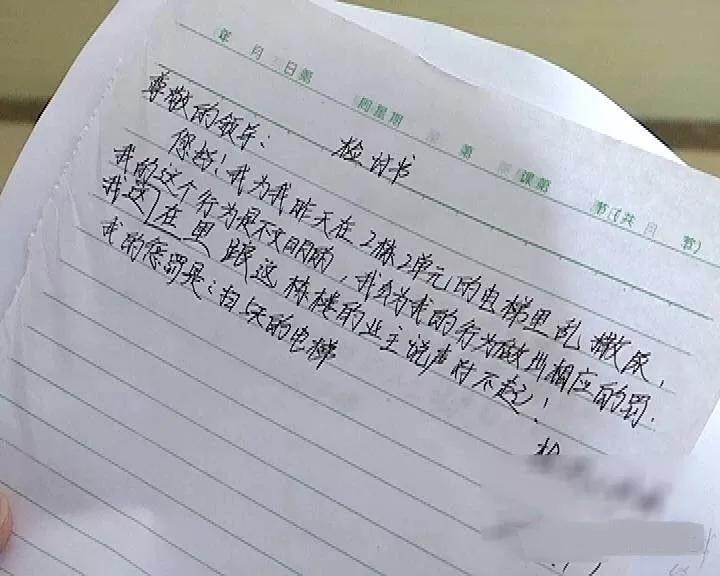 年 月 日第 周星期 第 课第 节(共 节)
检讨书
尊敬的领导:
您好!我为我昨天在2栋2单元的电梯里乱撒尿,
我的这个行为是不文明的,我会为我的行为做出相应的罚.
我这在里跟这栋楼的业主说声对不起!
我的惩罚是:扫5天的电梯